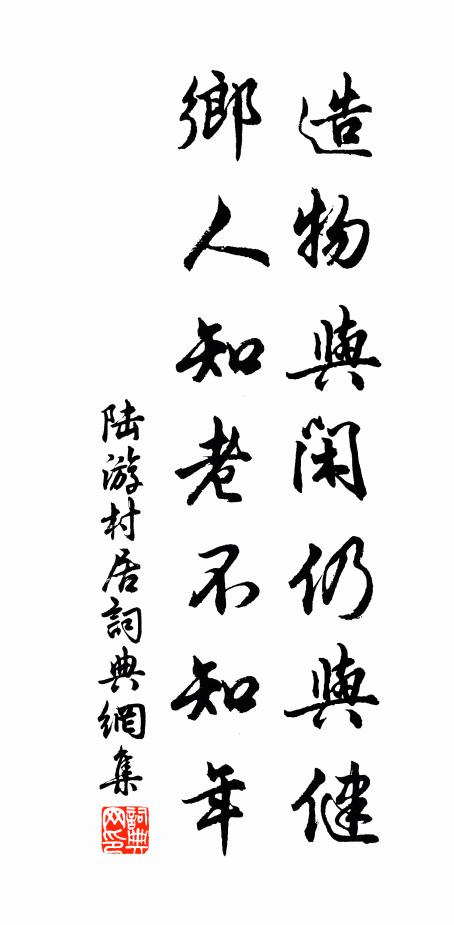 造物與閑仍與健
鄉人知老不知年
陸游村居詞典網集
詞典
网印